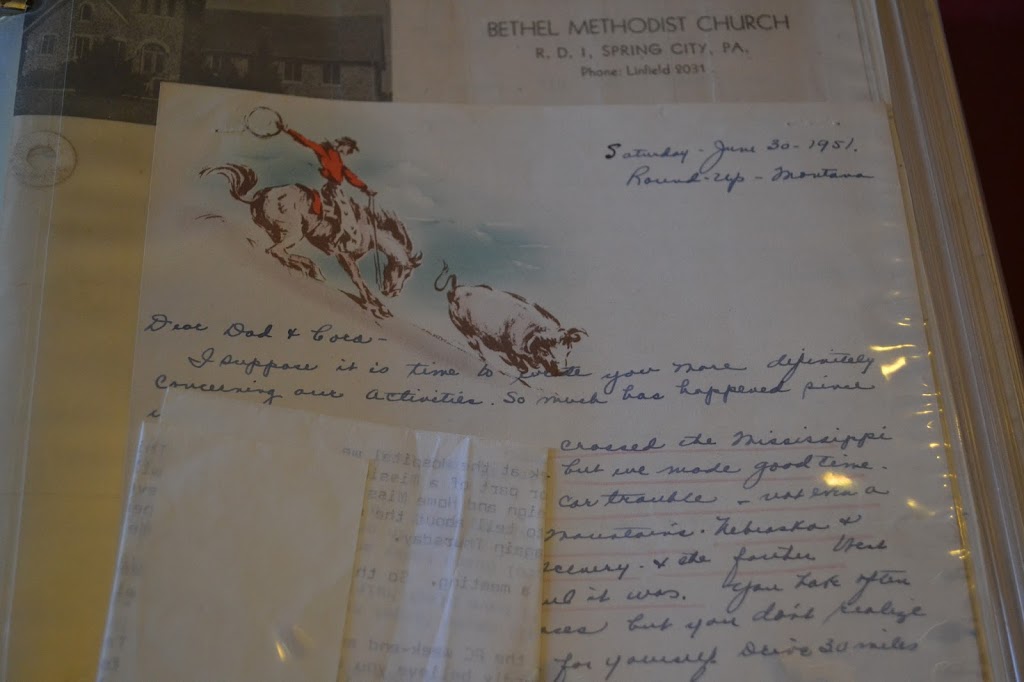 BETHEL METHODIST CHURCH
R. D. 1, SPRING CITY, PA.
Phone: Linfield 2031
Saturday - June 30 - 1951.
Round-Up - Montana
Dear Dad & Cora -
I suppose it is time to write you more definitely
concerning our activities. So much has happened since
crossed the Mississippi
but we made good time.
car trouble - not even a
Mountains. Nebraska &
scenery. & the farther West
it was. You have often
but you don't realize
for yourself. Drive 30 miles
k at the Hospital me
or part of a Missi
eign and Home Miss
to tell about the
again Thursday.
a meeting. So th
the PC week-end
believe you